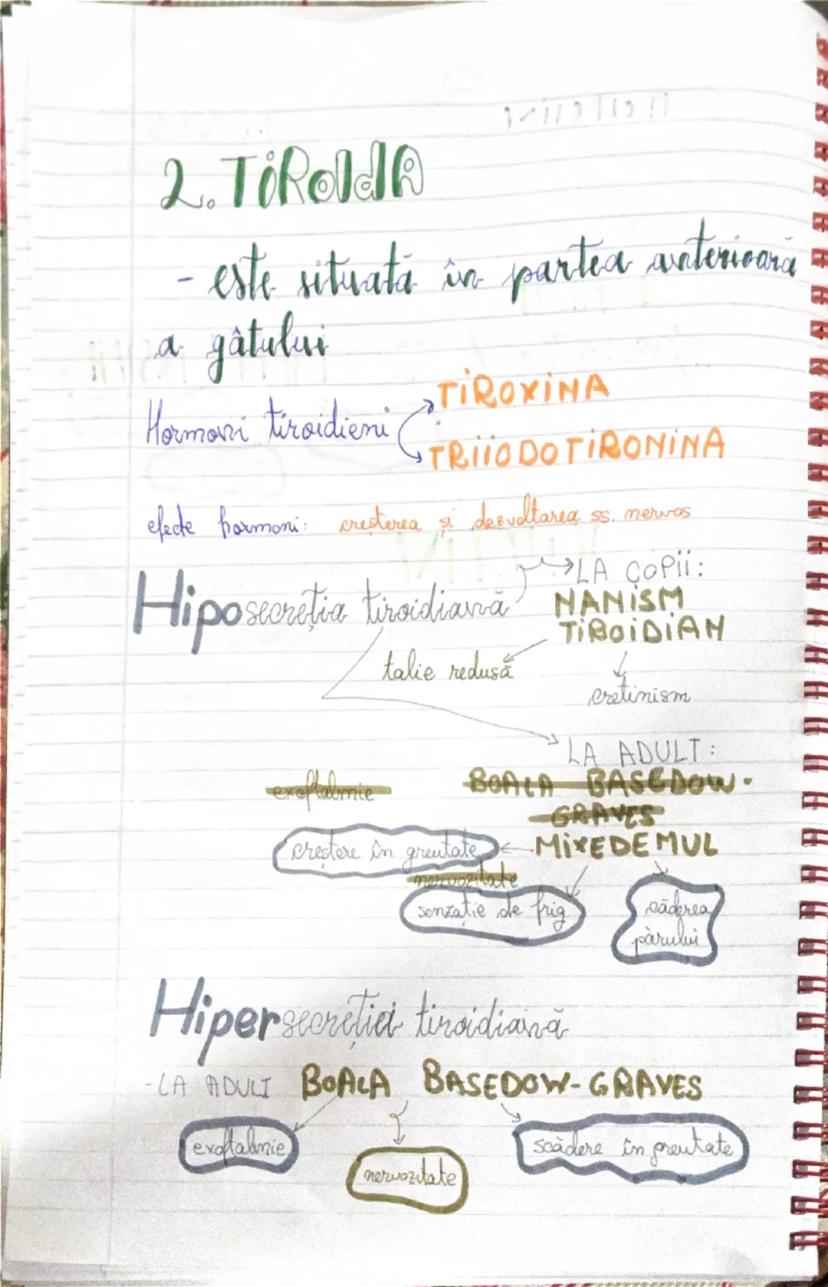 2. TiRoIdA
- este situată în partea anterioară
a gâtului
TiROXiNA
Hormoni tiroidieni
TRiiODOTiRONiNA
efecte hormoni: creșterea și dezvoltarea ss. nervos
LA COPii:
Hiposecreția tiroidiană NANiSM
TiROiDiAN
talie redusă
cretinism
LA ADULT:
exoftalmie BOALA BASEDOW-
GRAVES
creștere în greutate MiXEDEMUL
nervozitate
senzație de frig căderea
părului
Hipersecreția tiroidiană
-LA ADULT BOALA BASEDOW-GRAVES
exoftalmie scădere în greutate
nervozitate